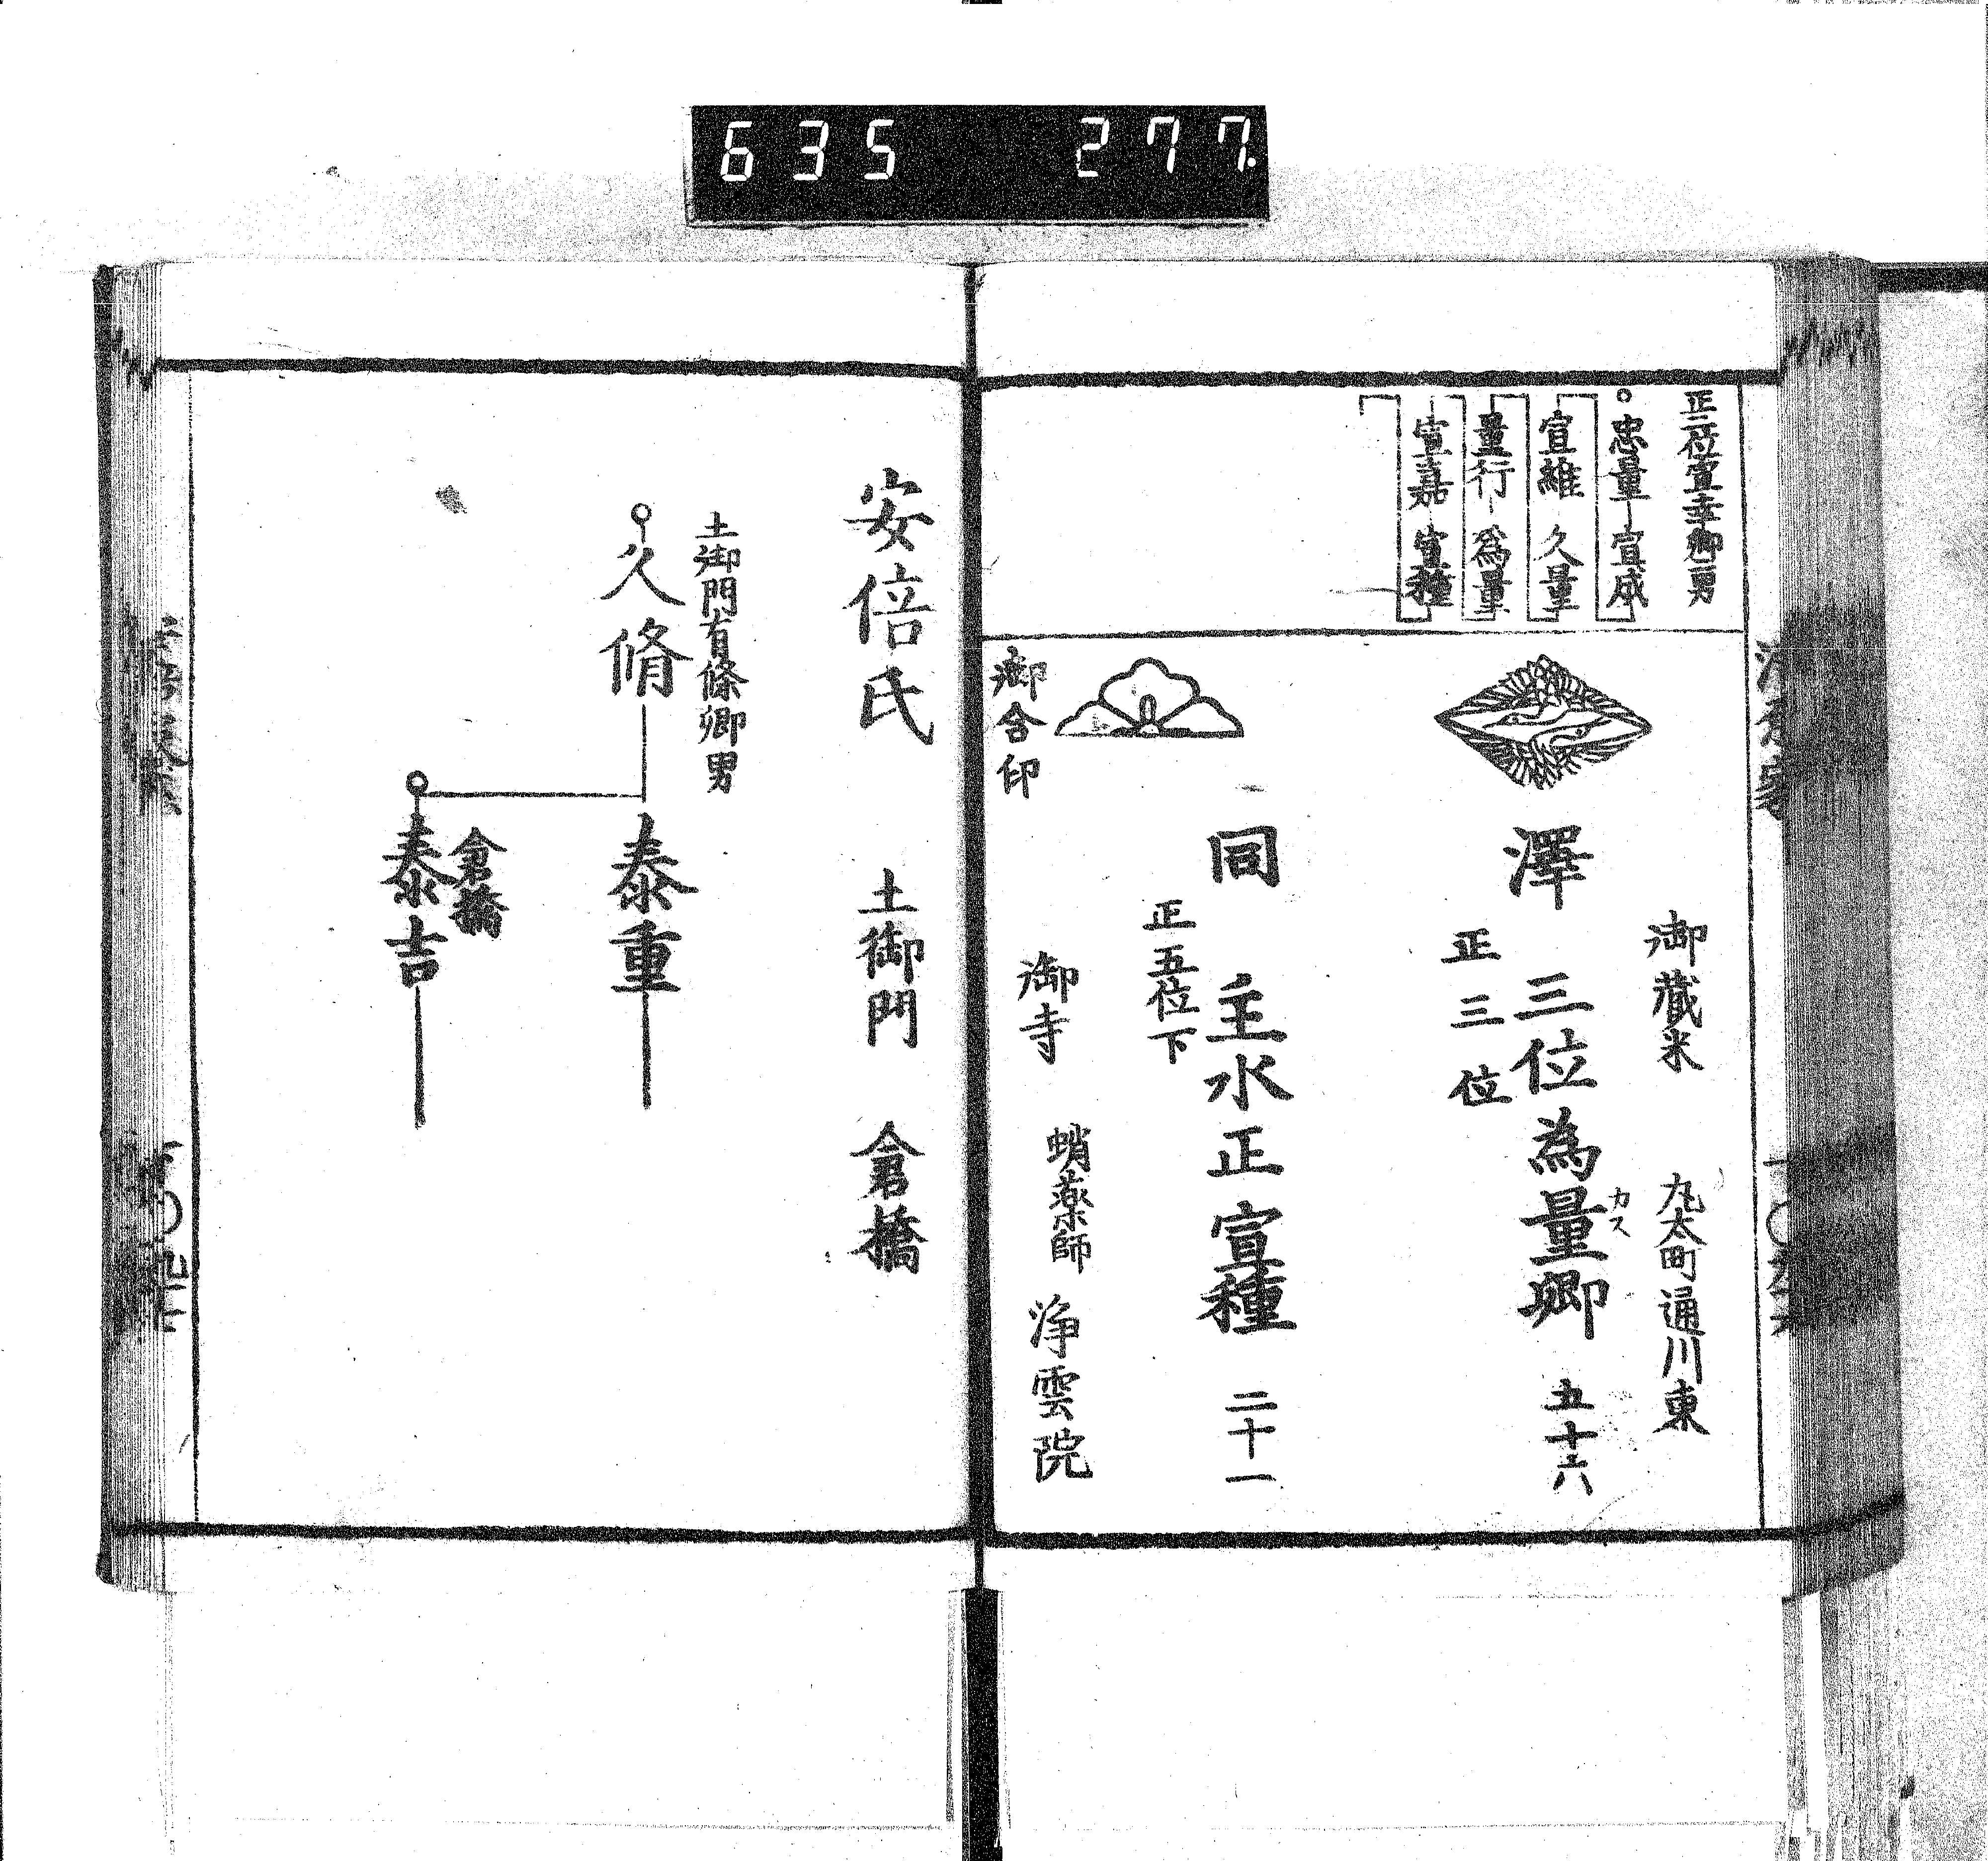 635 277.
正二位宣幸卿男
忠量 宣成
宣維 久量
量行 爲量
宣嘉 宣種
御藏米 丸太町通川東
澤 三位為量卿 五十六
カス
正三位
同 主水正宣種 二十一
正五位下
御合印
御寺 蛸薬師 浄雲院
安倍氏 土御門 倉橋
土御門有條卿男
久脩 泰重
倉橋
泰吉